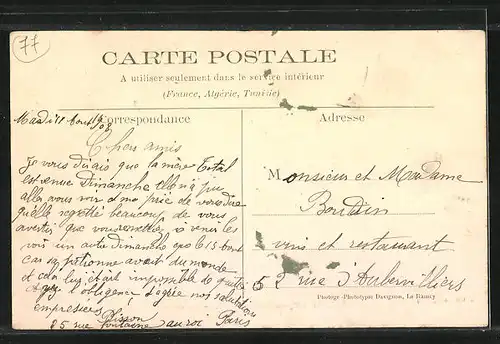 77
CARTE POSTALE
A utiliser seulement dans le service intérieur
(France, Algérie, Tunisie)
Mardi 11 Aout 08
Correspondance
Adresse
Chers amis
Je vous dirais que la mère
est venue Dimanche elle
aller vous voir me prie de vous dire
quelle regrette beaucoup de vous
avertir que vous à venir les
voir un autre Dimanche que le 15 Aout
car sa patronne avait du monde
et cela lui était impossible de quitter
obligence nos salutations
empressées
Pisson
25 rue Fontaine au roi Paris
Monsieur et Madame
Boudin
vins et restaurant
2 rue d'Aubervilliers
Postage-Phototypie Davignon, Le Raincy